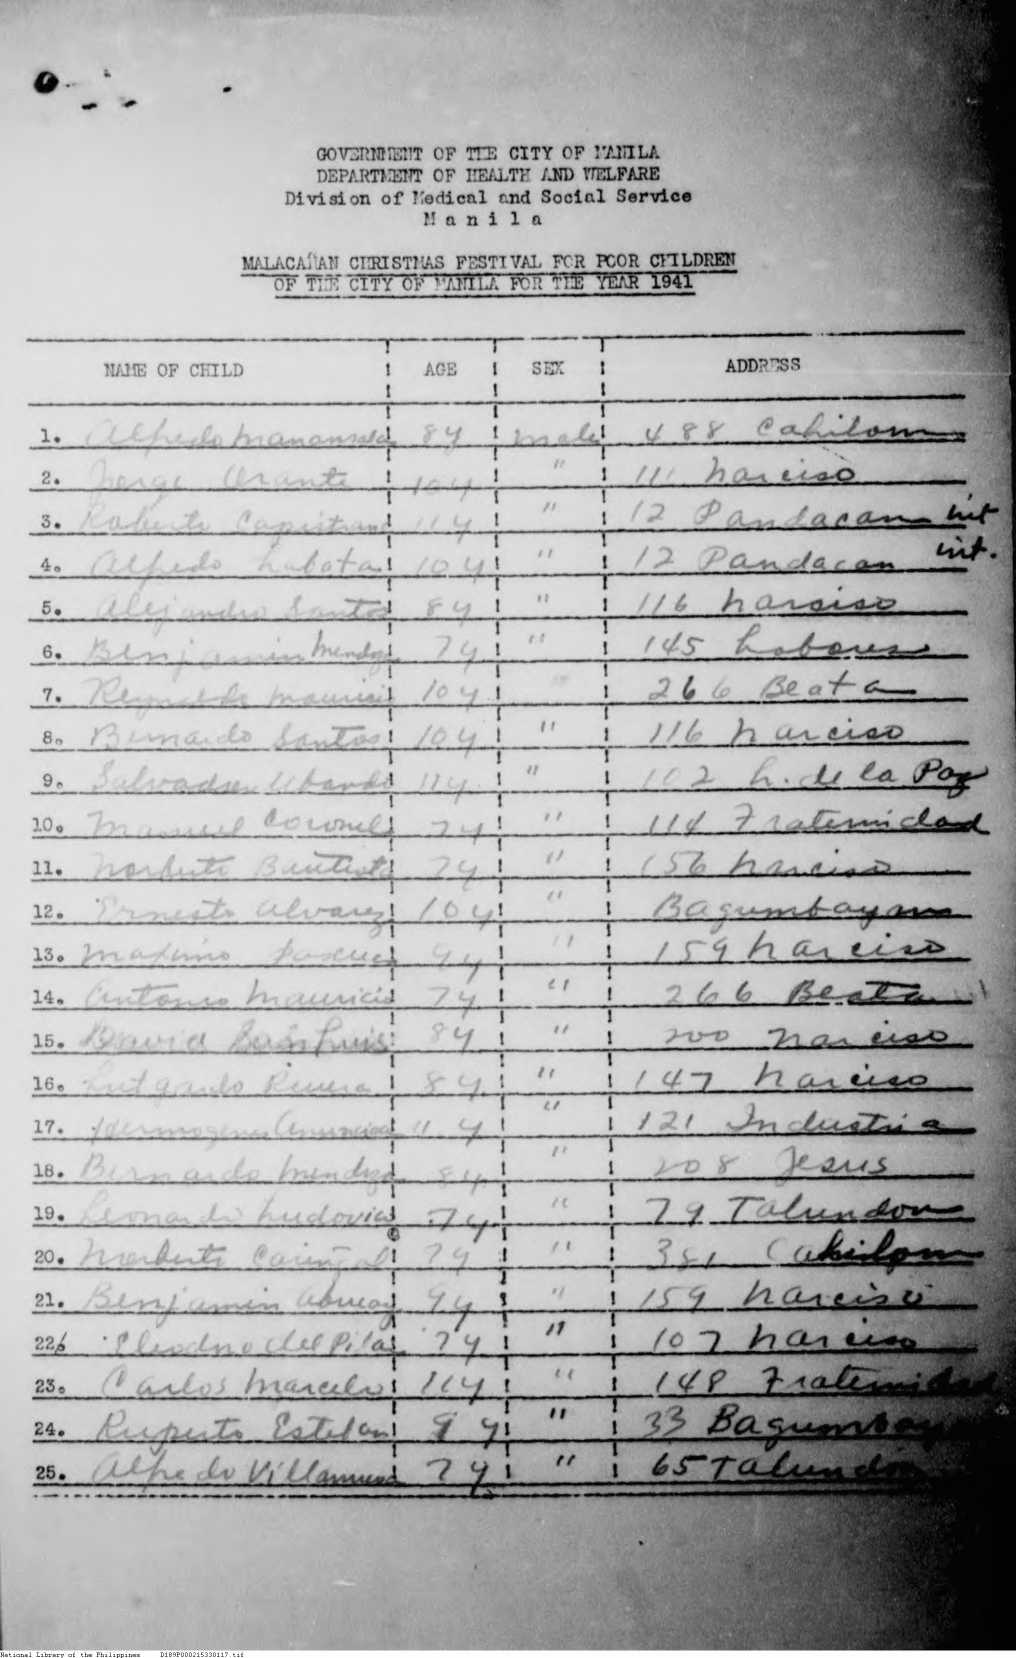 GOVERNMENT OF THE CITY OF MANILA
DEPARTMENT OF HEALTH AND WELFARE
Division of Medical and Social Service
M a n i l a
MALACAÑAN CHRISTMAS FESTIVAL FOR POOR CHILDREN
OF THE CITY OF MANILA FOR THE YEAR 1941
NAME OF CHILD AGE SEX ADDRESS
1. Alfredo Manansala 8 y male 488 Cahilom
2. Jorge Orante 10 y " 111 Narciso
3. Roberto Capistrano 11 y " 12 Pandacan int
4. Alfredo Labata 10 y " 12 Pandacan int.
5. Alejandro Santos 8 y " 116 Narciso
6. Benjamin Mendoza 7 y " 145 Labores
7. Reynaldo Mauricio 10 y " 266 Beata
8. Bernardo Santos 10 y " 116 Narciso
9. Salvador 11 y " 102 L. de la Paz
10. Manuel Coronel 7 y " 114 Fraternidad
11. Norberto Bautista 7 y " 156 Narciso
12. Ernesto Alvarez 10 y " Bagumbayan
13. Maximo Pascual 9 y " 159 Narciso
14. Antonio Mauricio 7 y " 266 Beata
15. David San Luis 8 y " 200 Narciso
16. Lutgardo Rivera 8 y " 147 Narciso
17. Hermogenes 11 y " 121 Industria
18. Bernardo Mendoza 8 y " 208 Jesus
19. Leonardo Ludovia 7 y " 79 Talundon
20. Norberto Cariñgal 7 y " 381 Cahilom
21. Benjamin 9 y " 159 Narciso
22. del Pilar 7 y " 107 Narciso
23. Carlos Marcelo 11 y " 148 Fraternidad
24. Ruperto Esteban 9 y " 33 Bagumbayan
25. Alfredo Villanueva 7 y " 65 Talundon
National Library of the Philippines D189P000215330117.tif